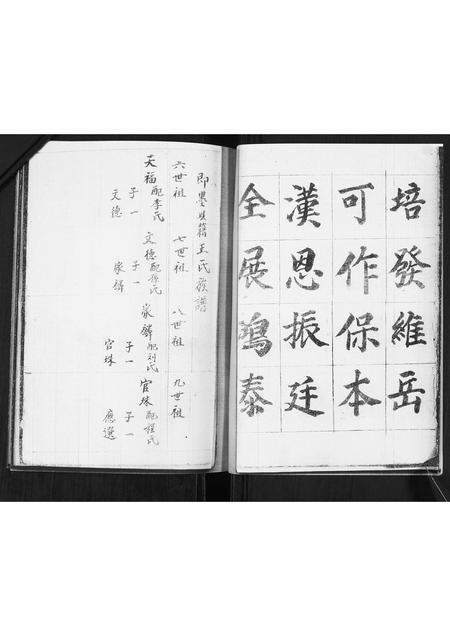 培發維岳
可作保本
漢恩振廷
全展鴻泰
即墨县籍王氏族譜
六世祖 七世祖 八世祖 九世祖
天福配李氏 文德配孫氏 家麟配刘氏 官珠配程氏
子一 子一 子一 子一
文德 家麟 官珠 應選